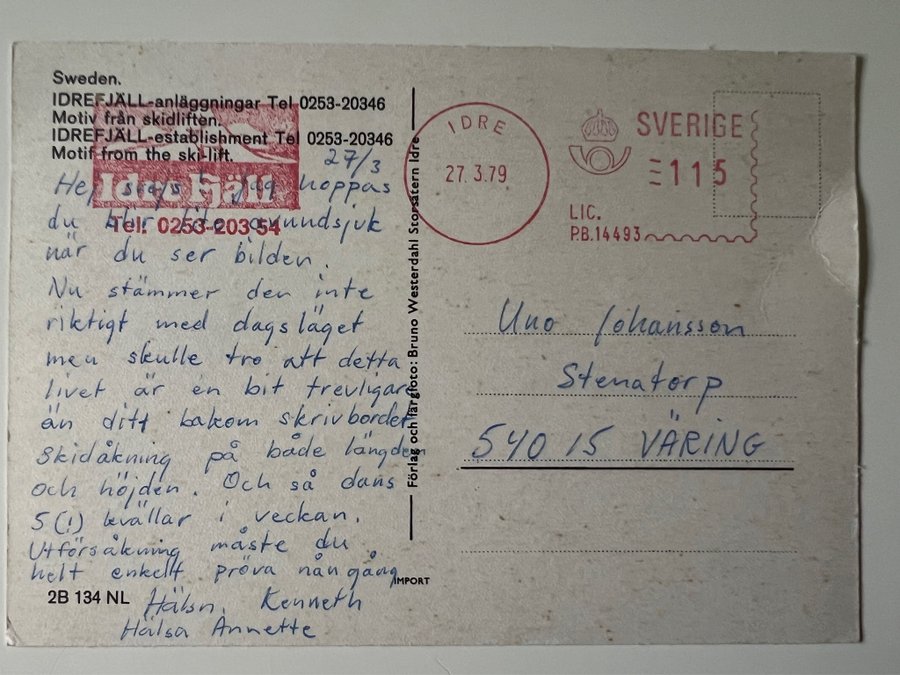 Sweden.
IDREFJÄLL-anläggningar Tel 0253-20346
Motiv från skidliften.
IDREFJÄLL-establishment Tel 0253-20346
Motif from the ski-lift.
Idre Fjäll
Tel. 0253-203 54
27/3
Hej Jag hoppas
du blir lite avundsjuk
när du ser bilden.
Nu stämmer den inte
riktigt med dagsläget
men skulle tro att detta
livet är en bit trevligare
än ditt bakom skrivbordet
Skidåkning på både längden
och höjden. Och så dans
5 (!) kvällar i veckan.
Utförsåkning måste du
helt enkelt pröva nån gång
Hälsn. Kenneth
Hälsa Annette
2B 134 NL
IMPORT
Förlag och färgfoto: Bruno Westerdahl Storsätern Idre
IDRE
27.3.79
SVERIGE
115
LIC.
P.B.14493
Uno Johansson
Stenatorp
540 15 VÄRING